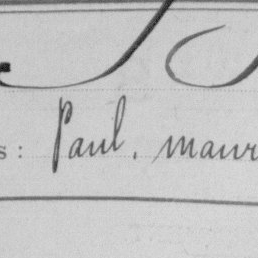 s : Paul, maur